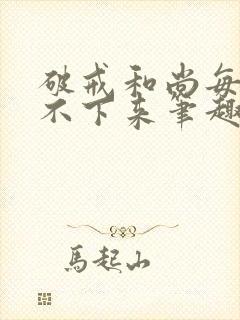 破戒和尚每
不下来笔趣
馬起山